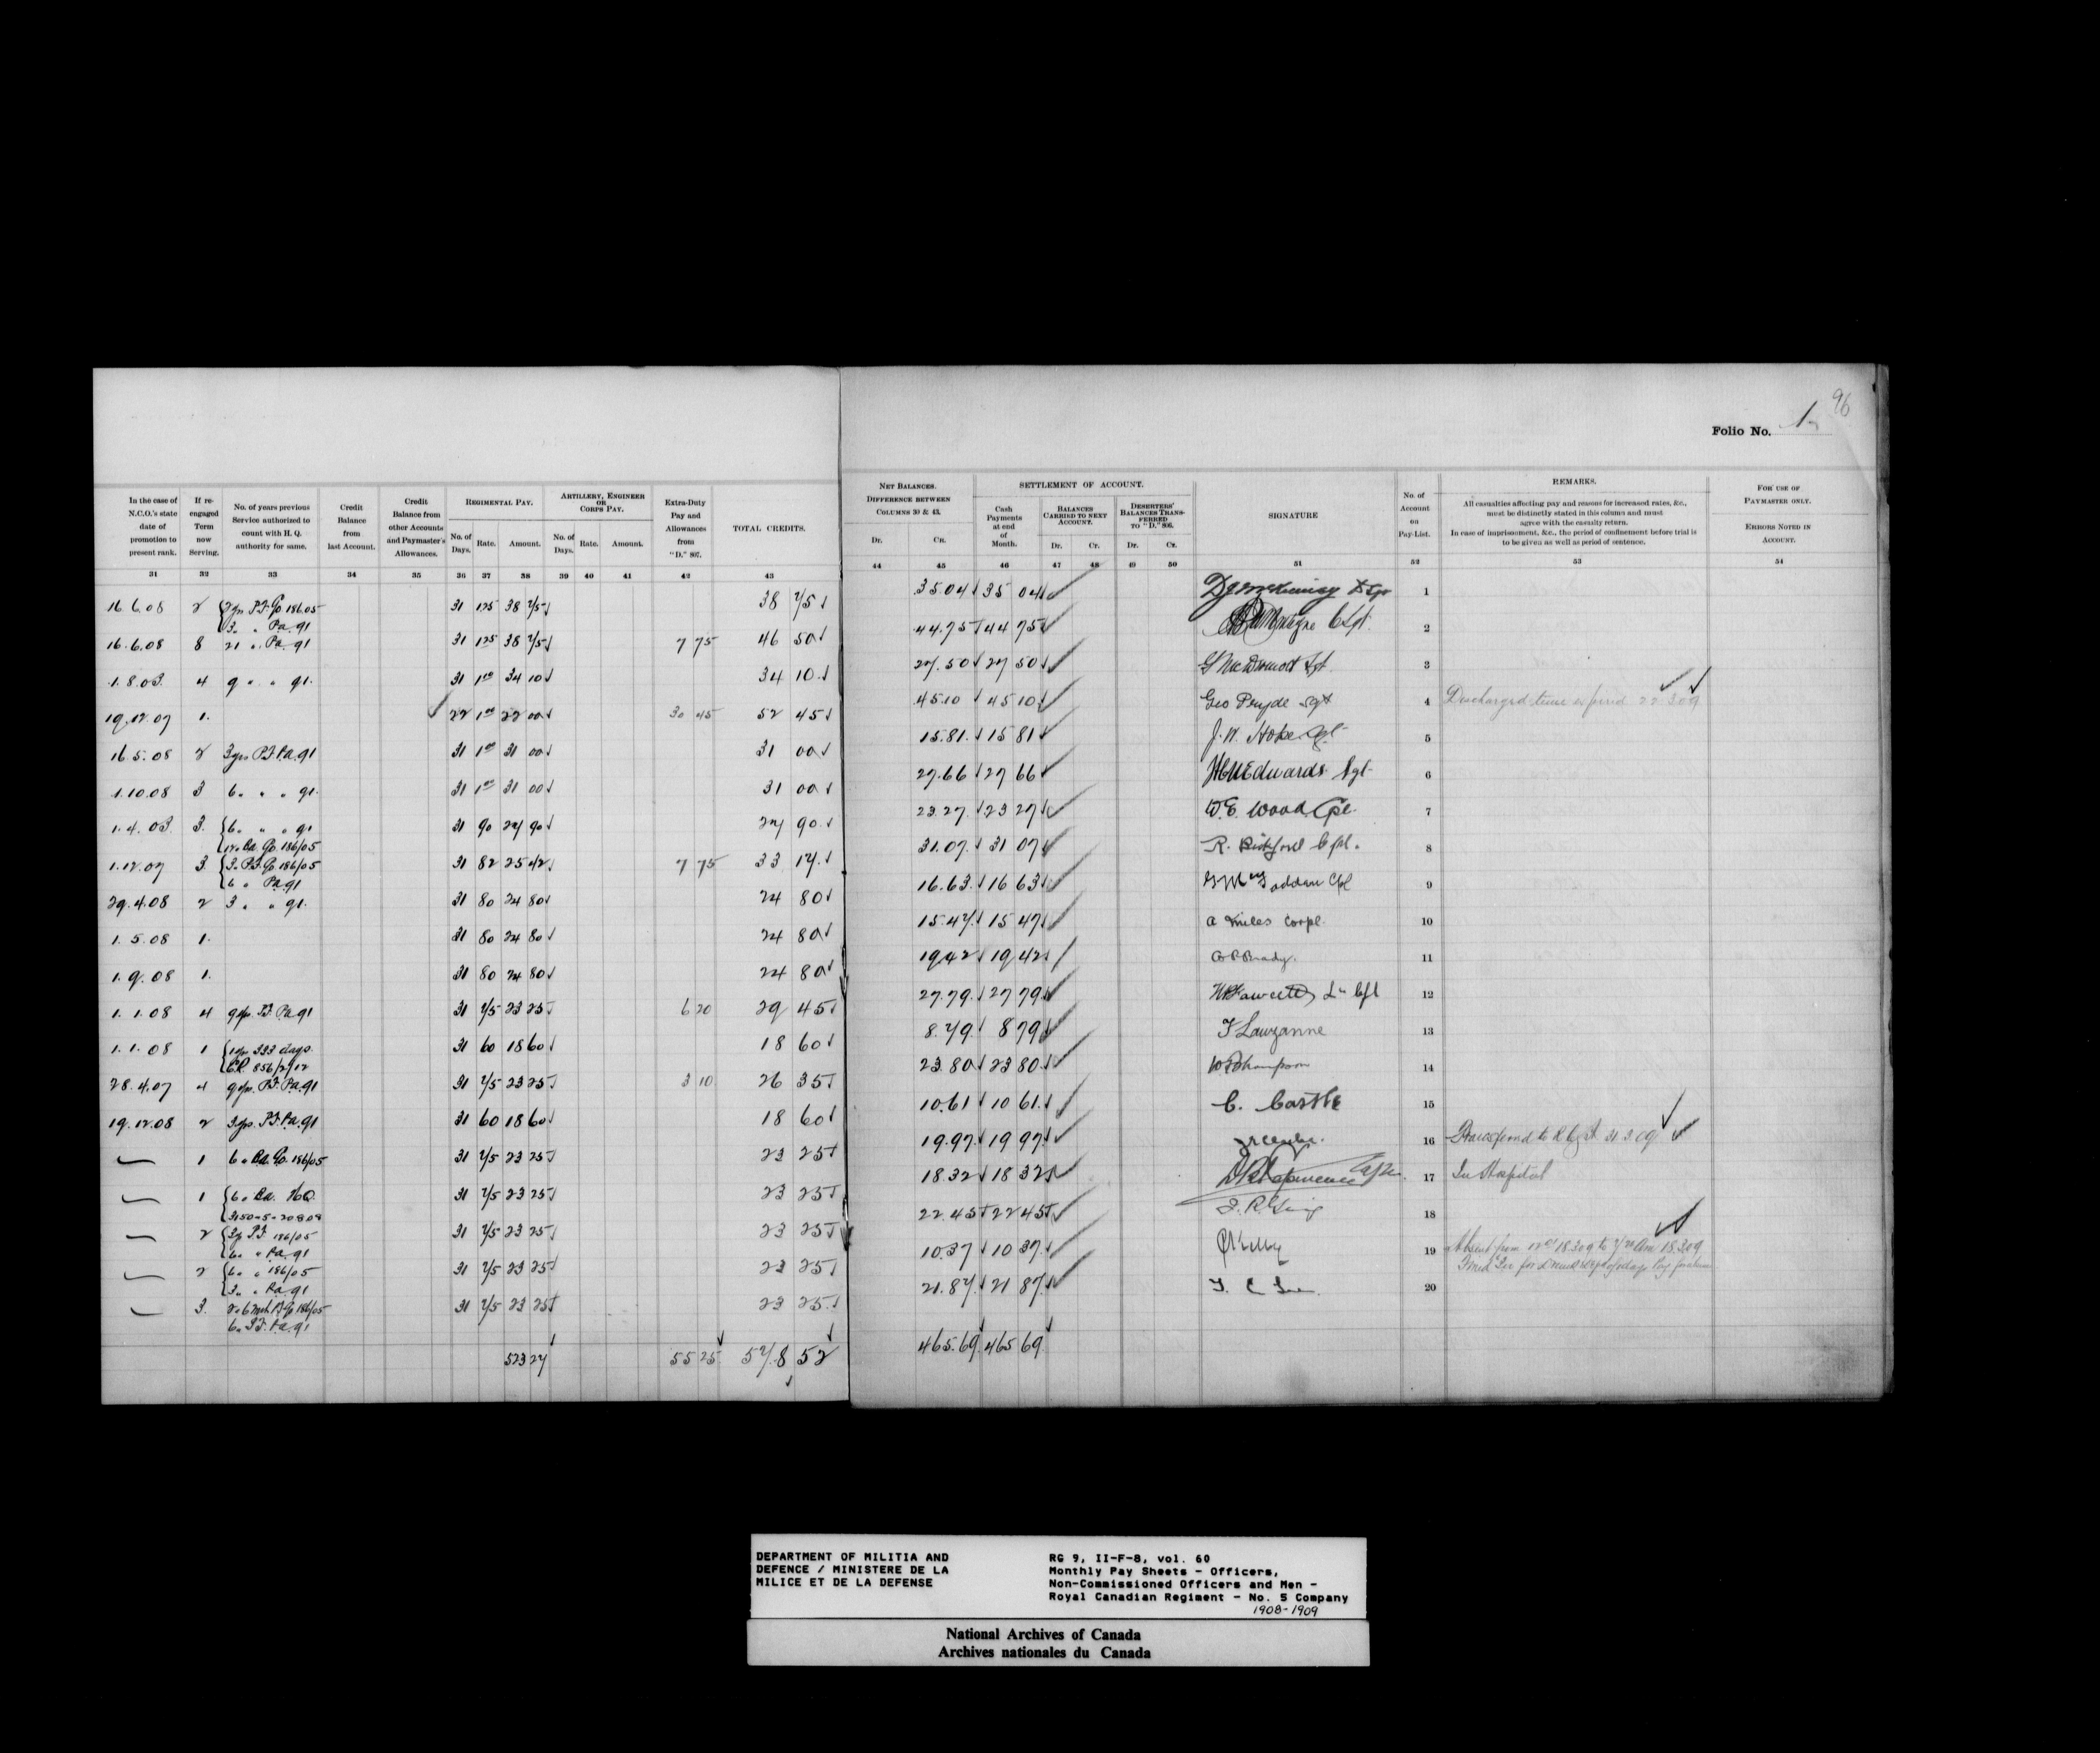 96
Folio No. 1
In the case of N.C.O.'s state date of promotion to present rank.
If re-engaged Term now Serving.
No. of years previous Service authorized to count with H. Q. authority for same.
Credit Balance from last Account.
Credit Balance from other Accounts and Paymaster's Allowances.
REGIMENTAL PAY.
No. of Days. Rate. Amount.
ARTILLERY, ENGINEER OR CORPS PAY.
No. of Days. Rate. Amount.
Extra-Duty Pay and Allowances from "D." 807.
TOTAL CREDITS.
NET BALANCES.
DIFFERENCE BETWEEN COLUMNS 30 & 43.
Dr. Cr.
SETTLEMENT OF ACCOUNT.
Cash Payments at end of Month.
BALANCES CARRIED TO NEXT ACCOUNT.
Dr. Cr.
DESERTERS' BALANCES TRANSFERRED TO "D." 806.
Dr. Cr.
SIGNATURE
No. of Account on Pay-List.
REMARKS.
All casualties affecting pay and reasons for increased rates, &c., must be distinctly stated in this column and must agree with the casualty return.
In case of imprisonment, &c., the period of confinement before trial is to be given as well as period of sentence.
FOR USE OF PAYMASTER ONLY.
ERRORS NOTED IN ACCOUNT.
31 32 33 34 35 36 37 38 39 40 41 42 43 44 45 46 47 48 49 50 51 52 53 54
16.6.08 2 3 yrs P.F. G.O. 186.05 31 1.25 38 75 38 75 35.04 35 04 1
3 " " Pa. 91
16.6.08 8 21 " Pa. 91 31 1.25 38 75 7 75 46 50 44.75 44 75 2
1.8.03 4 9 " " 91. 31 1.10 34 10 34 10 27.50 27 50 G McDermott Sgt. 3
19.12.07 1. 22 1.00 22 00 30 45 52 45 45.10 45 10 Geo Pryde Sgt 4 Discharged time expired 22.3.09
16.5.08 2 3 yrs P.F. Pa. 91 31 1.00 31 00 31 00 15.81 15 81 J. W. Hope Sgt 5
1.10.08 3 6 " " " 91. 31 1.00 31 00 31 00 27.66 27 66 Edwards Sgt 6
1.4.03 3. 6 " " " 91 31 90 27 90 27 90 23.27 23 27 W. E. Wood Cpl. 7
12 " Ba. G.O. 186/05
1.12.07 3 3 " P.F. G.O. 186/05 31 82 25 42 7 75 33 17 31.07 31 07 R. Bickford Cpl. 8
6 " Pa. 91
29.4.08 2 3 " " 91. 31 80 24 80 24 80 16.63 16 63 Cpl 9
1.5.08 1. 31 80 24 80 24 80 15.47 15 47 A Miles Corpl. 10
1.9.08 1. 31 80 24 80 24 80 19.42 19 42 Brady. 11
1.1.08 4 9 yrs. P.F. Pa 91 31 75 23 25 6 20 29 45 27.79 27 79 Fawcett Ln Cpl 12
1.1.08 1 1 yr 333 days. 31 60 18 60 18 60 8.79 8 79 F Lauzanne 13
C.R. 856/2/12
28.4.07 4 9 yrs. P.F. Pa. 91 31 75 23 25 3 10 26 35 23.80 23 80 Thompson 14
19.12.08 2 3 yrs. P.F. Pa. 91 31 60 18 60 18 60 10.61 10 61 C. Castle 15
1 6 " Ba. G.O. 186/05 31 75 23 25 23 25 19.97 19 97 16 Transferred to R.C.G.A. 31.3.09
1 6 " Ba. HQ 31 75 23 25 23 25 18.32 18 32 17 In Hospital
3150-5-20.8.08
2 3 yr P.F. 186/05 31 75 23 25 23 25 22.45 22 45 18
6 " " Pa. 91
2 6 " " 186/05 31 75 23 25 23 25 10.37 10 37 Kelly 19 Absent from 18.3.09 to 18.3.09
3 " " Pa. 91
3. 2 " 6 mos P.F. G.O. 186/05 31 75 23 25 23 25 21.87 21 87 20
6 " P.F. Pa. 91
523 27 55 25 578 52 465.69 465 69
DEPARTMENT OF MILITIA AND DEFENCE / MINISTERE DE LA MILICE ET DE LA DEFENSE
RG 9, II-F-8, vol. 60
Monthly Pay Sheets - Officers,
Non-Commissioned Officers and Men -
Royal Canadian Regiment - No. 5 Company
1908-1909
National Archives of Canada
Archives nationales du Canada